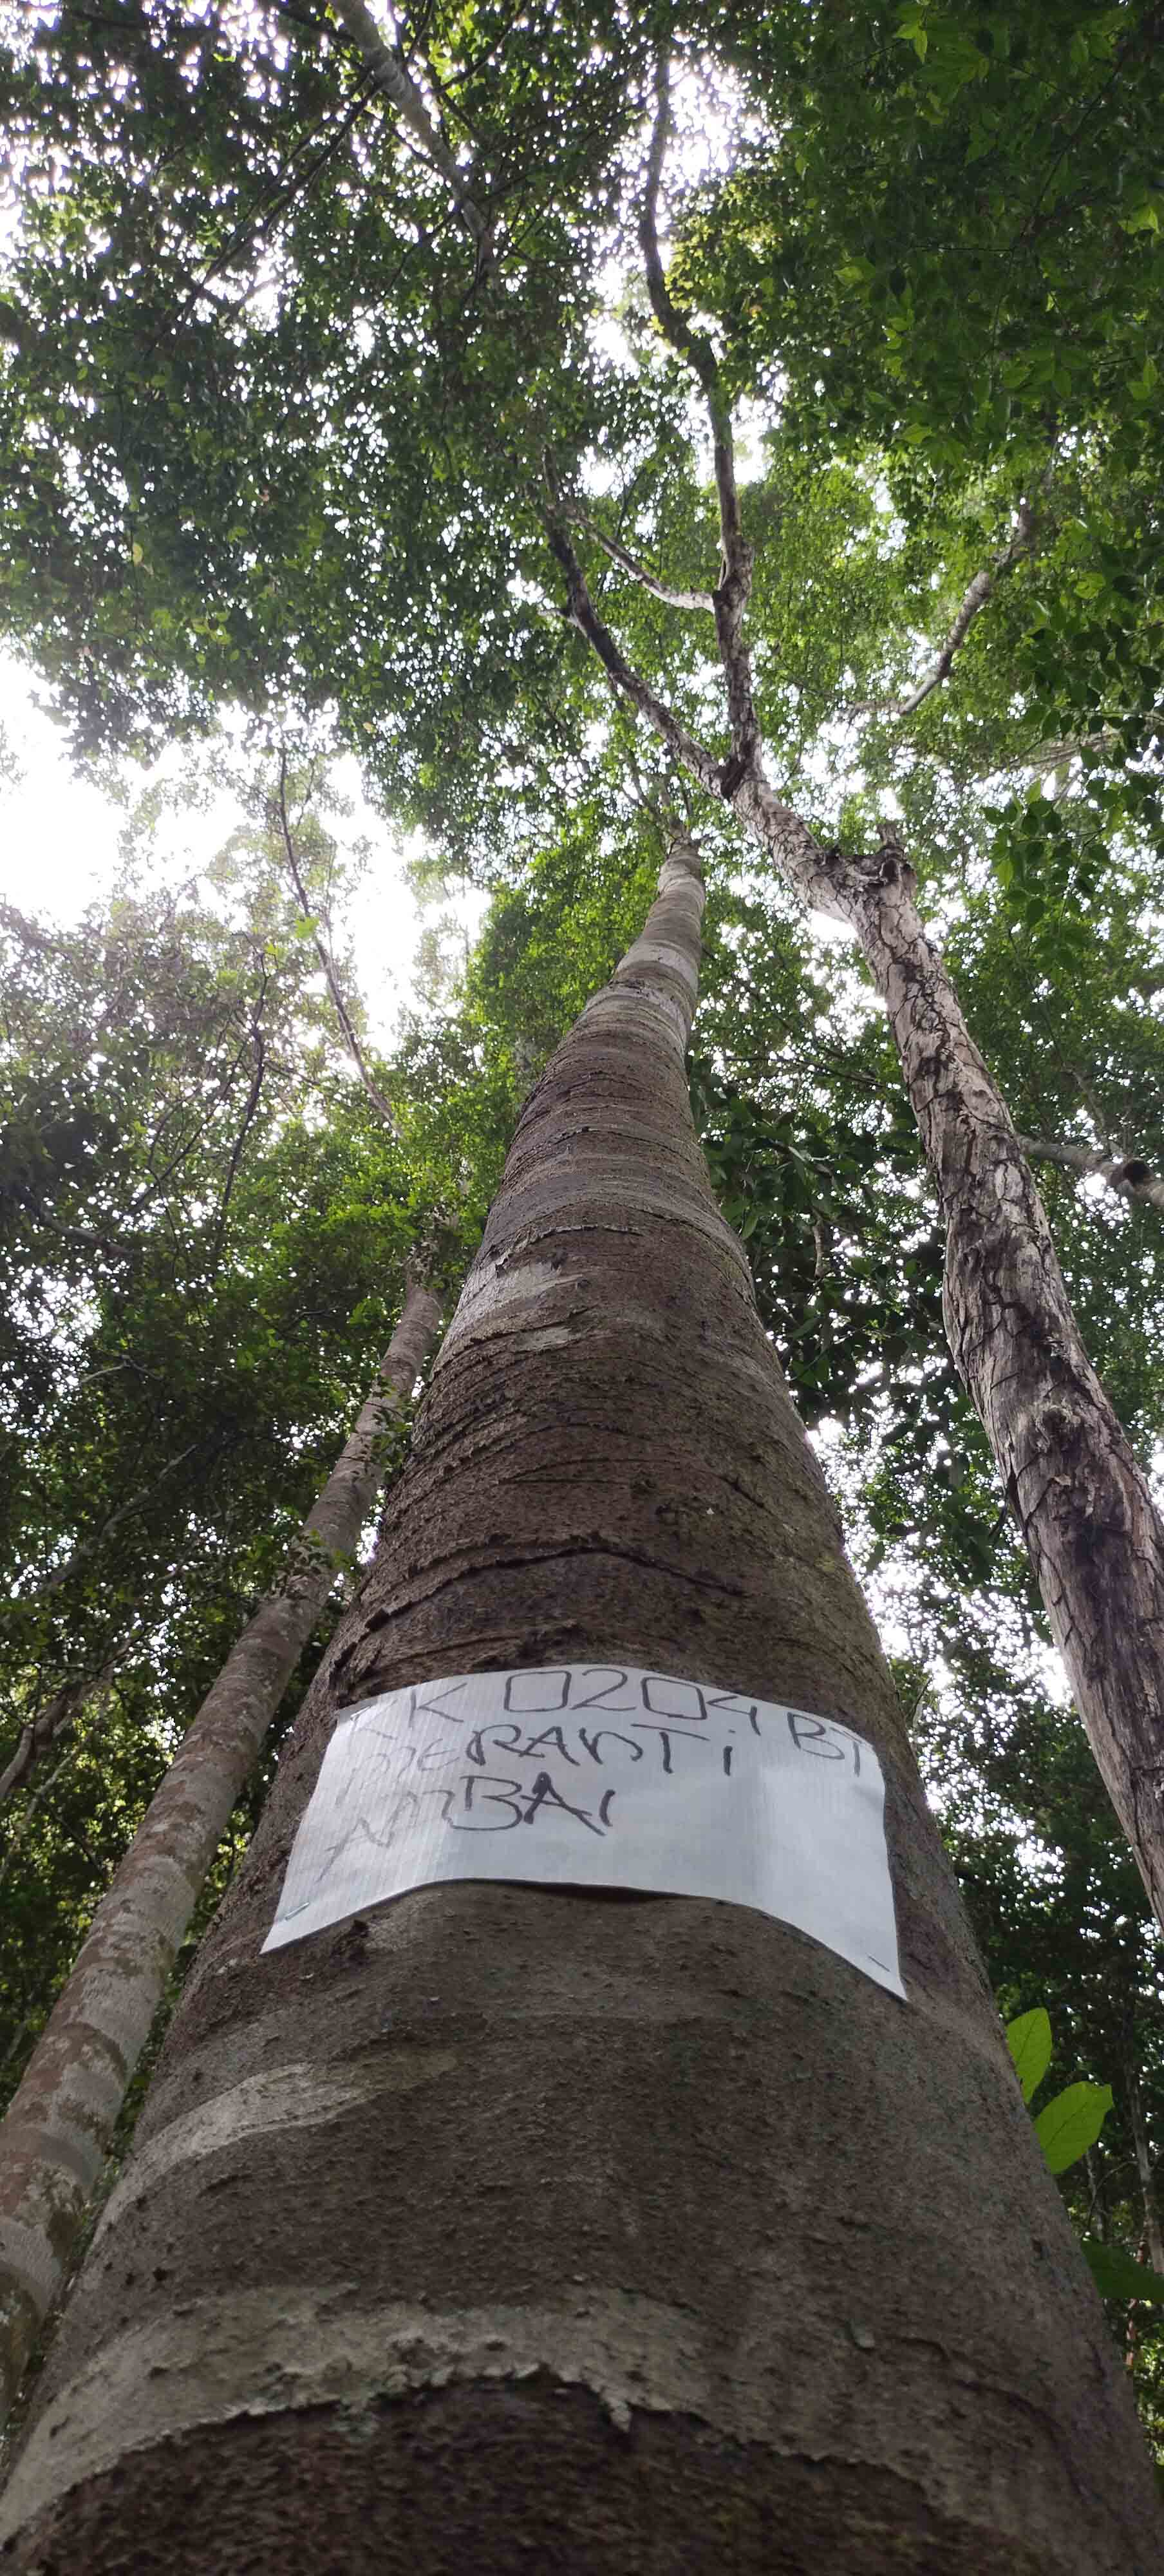 KK 0204 BT
MERANTi
NABAI